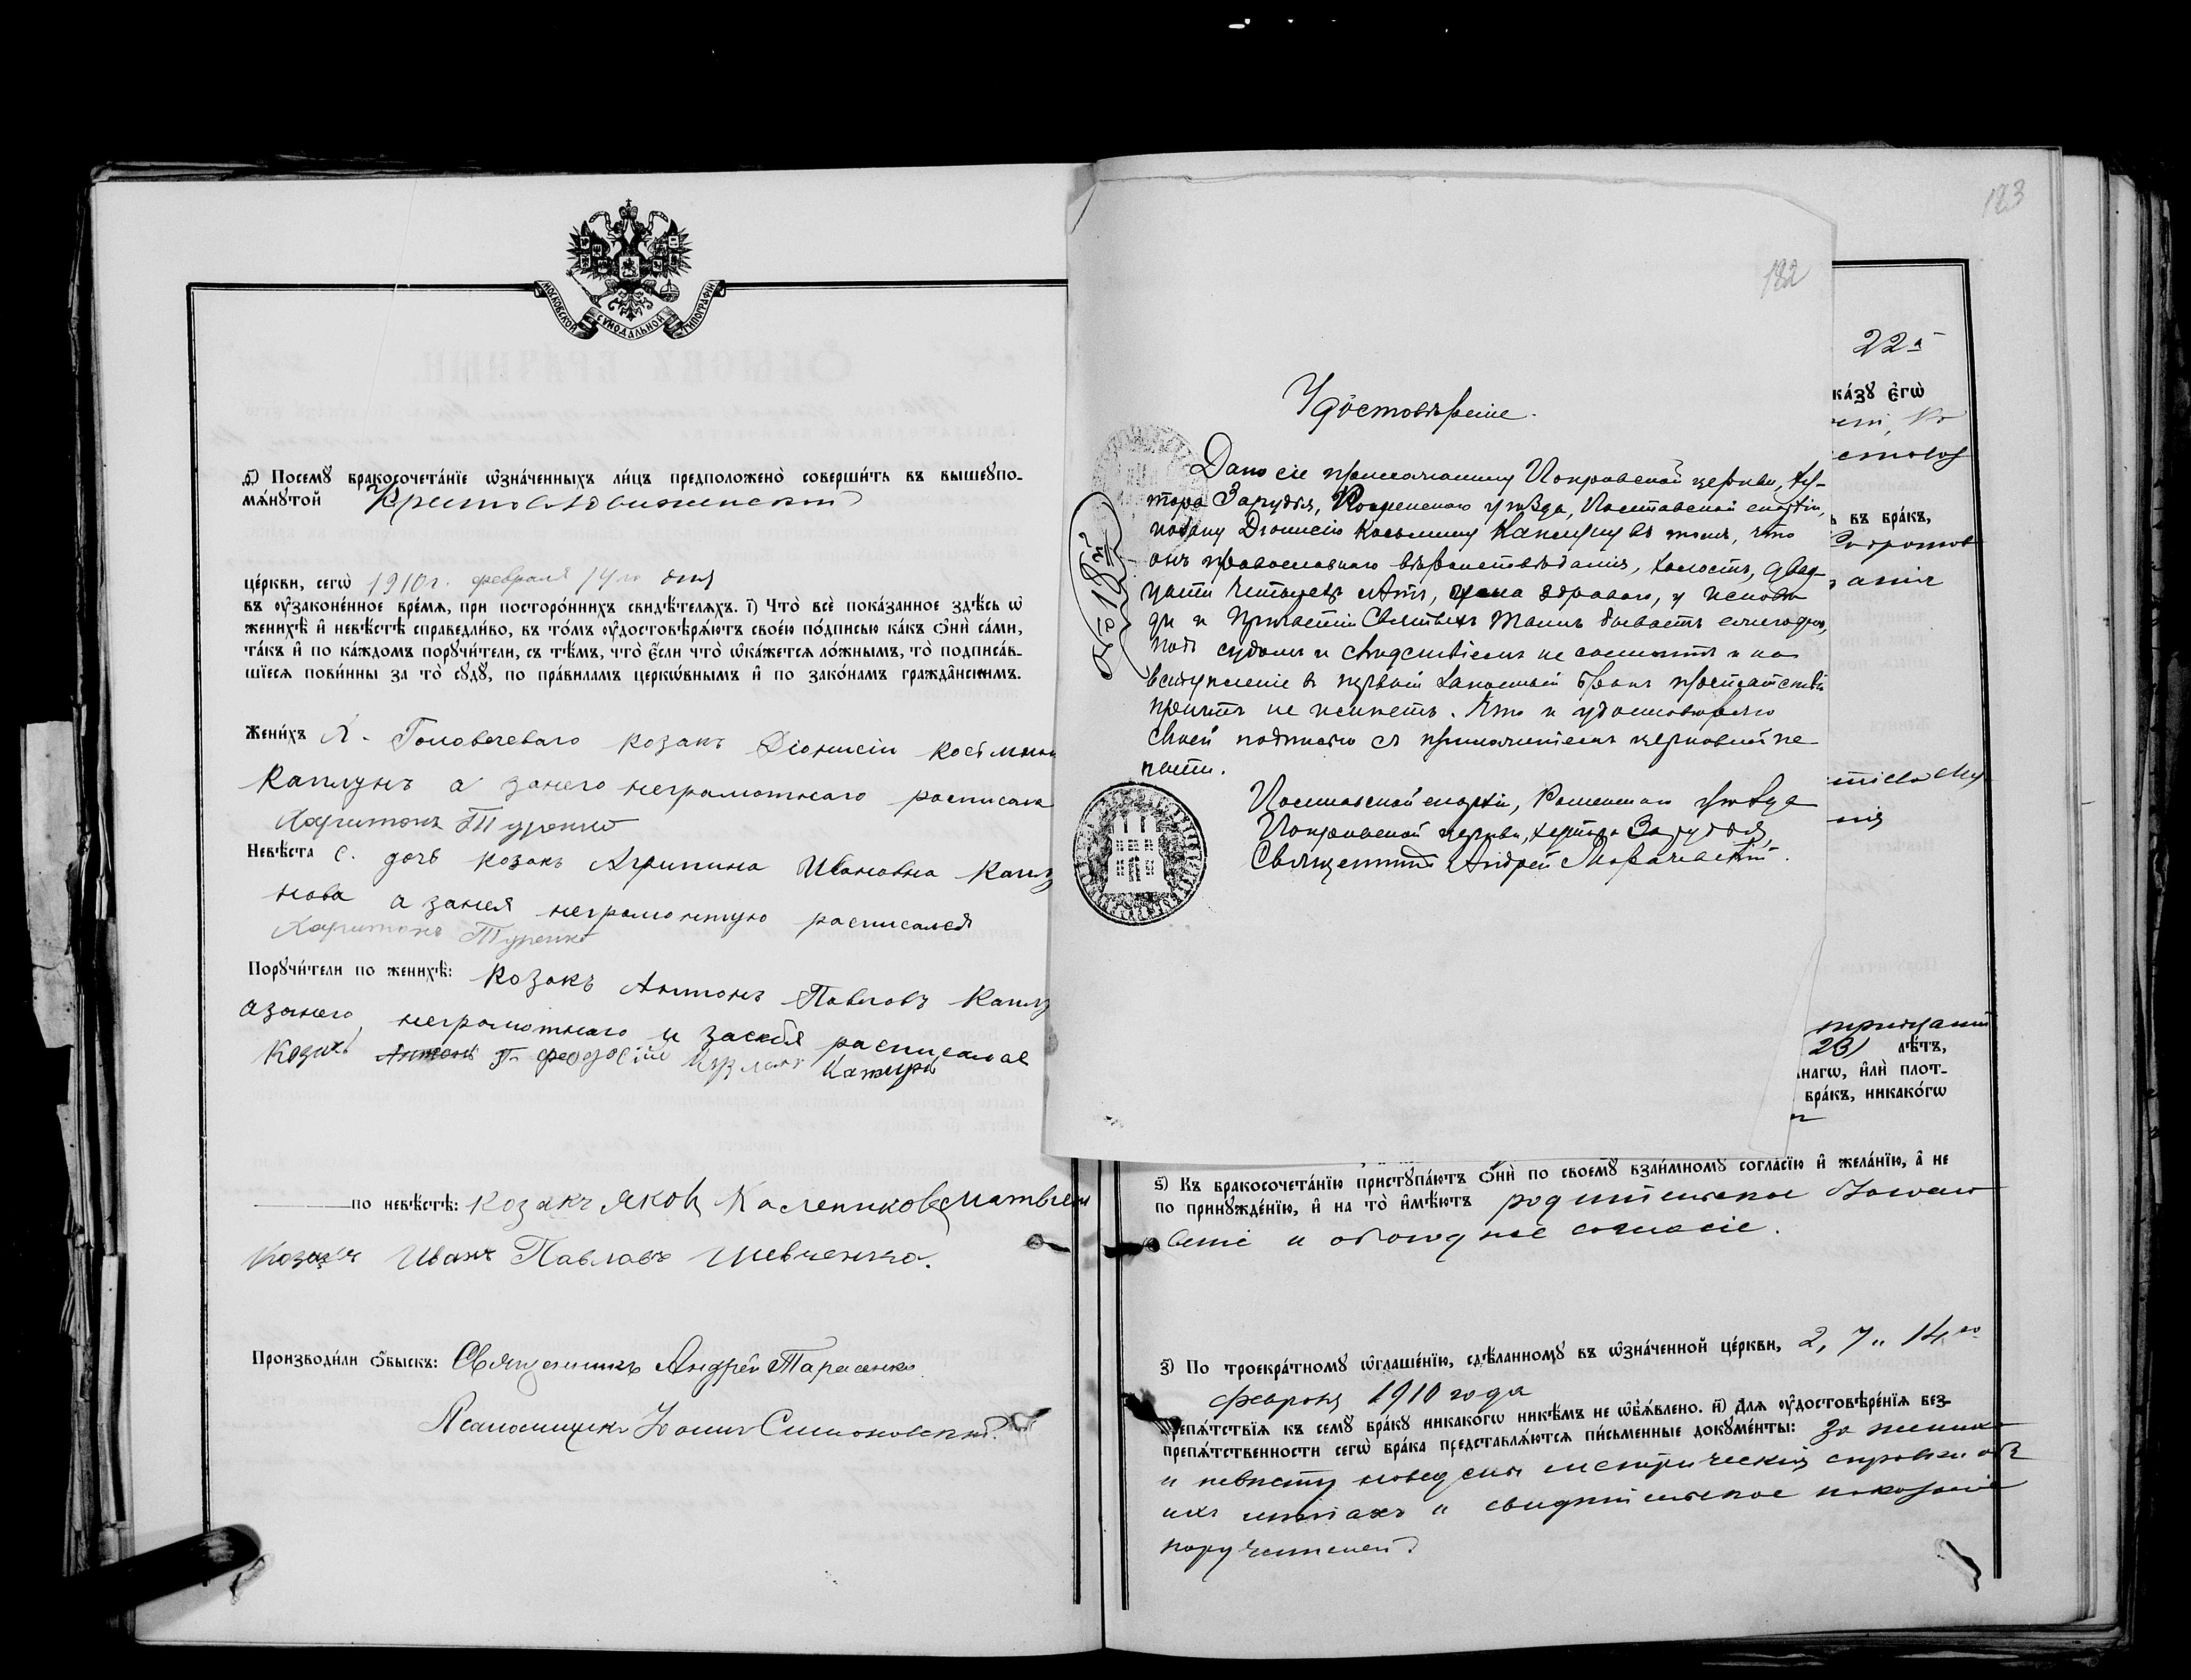 МОСКОВСКОЙ СѴНОДАЛЬНОЙ ТИПОГРАФІИ
Посемꙋ бракосочета́нїе ѡ҆зна́ченныхъ ли́цъ предположено̀ соверши́ть въ вышеꙋпо-
мѧ́нꙋтой Крестовоздвиженской
це́ркви, сегѡ̀ 1910 г. февраля 14го дня
въ ᲂу҆зако́ненное вре́мѧ, при посторо́ннихъ свидѣ́телѧхъ. і҃) Что̀ всѐ пока́занное здѣ́сь ѡ҆
женихѣ̀ и҆ невѣ́стѣ справедли́во, въ то́мъ ᲂу҆достовѣрѧ́ютъ свое́ю по́дписью ка́къ ѻ҆нѝ са́ми,
та́къ и҆ по ка́ждомъ порꙋчи́тели, съ тѣ́мъ, что̀ є҆́сли что̀ ѡ҆ка́жетсѧ ло́жнымъ, то̀ подписа́в-
шїесѧ пови́нны за то̀ сꙋдꙋ̀, по пра́виламъ церкѡ́внымъ и҆ по зако́намъ гражда̑нскимъ.
Жени́хъ х. Головочевага козакъ Діонисій Косьмин
Каплунъ а занего неграмотнаго росписался
Харитонъ Туренко
Невѣ́ста с. дочь козака Агрипина Ивановна Каплу
нова а занея неграмотную росписался
Харитонъ Туренко
Порꙋчи́тели по женихѣ̀: Козакъ Антонъ Павловъ Каплу
азанего неграмотнаго и засебя росписался
Козакъ Феодосій Каплунъ
по невѣ́стѣ: козакъ Яковъ Калениковъ Матвіен
Козакъ Иванъ Павловъ Шевченко.
Производи́ли ѻ҆́быскъ: Священникъ Андрей Тарасенко
Псаломщикъ Іоаннъ Симоновскій.
123
182
Удостовѣреніе.
Дано сіе прихожанину Покровской церкви, ху-
тора Зарудья, Роменскаго уѣзда, Полтавской епархіи,
козаку Діонисію Косьмину Каплуну въ томъ, что
онъ православнаго вѣроисповѣданія, холостъ, двад-
цати четырехъ лѣтъ, ума здраваго, у исповѣ
ди и Причастіи Святыхъ Таинъ бываетъ ежегодно,
подъ судомъ и слѣдствіемъ не состоитъ и на
вступленіе въ первый законный бракъ препятствій
причтъ не имѣетъ. Что и удостовѣряю
своей подписью съ приложеніемъ церковной пе
чати.
Полтавской епархіи, Роменскаго уѣзда
Покровской церкви, хутора Зарудья,
Священникъ Андрей
22 а
ка́зꙋ є҆гѡ̀
въ бра́къ,
23) лѣ́тъ,
и҆лѝ пло́т-
бра́къ, никако́гѡ
ѕ҃) Къ бракосочета́нїю пристꙋпа́ютъ ѻ҆нѝ по своемꙋ̀ взаи́мномꙋ согла́сїю и҆ жела́нїю, а҆ не
по принꙋжде́нїю, и҆ на то̀ и҆мѣ́ютъ родительское благосло
веніе и обоюдное согласіе.
з҃) По троекра́тномꙋ ѡ҆глаше́нїю, сдѣ́ланномꙋ въ ѡ҆зна́ченной це́ркви, 2, 7 и 14го
февраля 1910 года
препѧ́тствїѧ къ семꙋ̀ бра́кꙋ никако́гѡ никѣ́мъ не ѡ҆б̾ѧ́влено. и҃) Длѧ ᲂу҆достовѣре́нїѧ без-
препѧ́тственности сегѡ̀ бра́ка представлѧ́ютсѧ пи́сьменные докꙋме́нты: За жениха
и невѣсту наведены метрическія справки объ
ихъ лѣтахъ и свидѣтельское показаніе
поручителей.